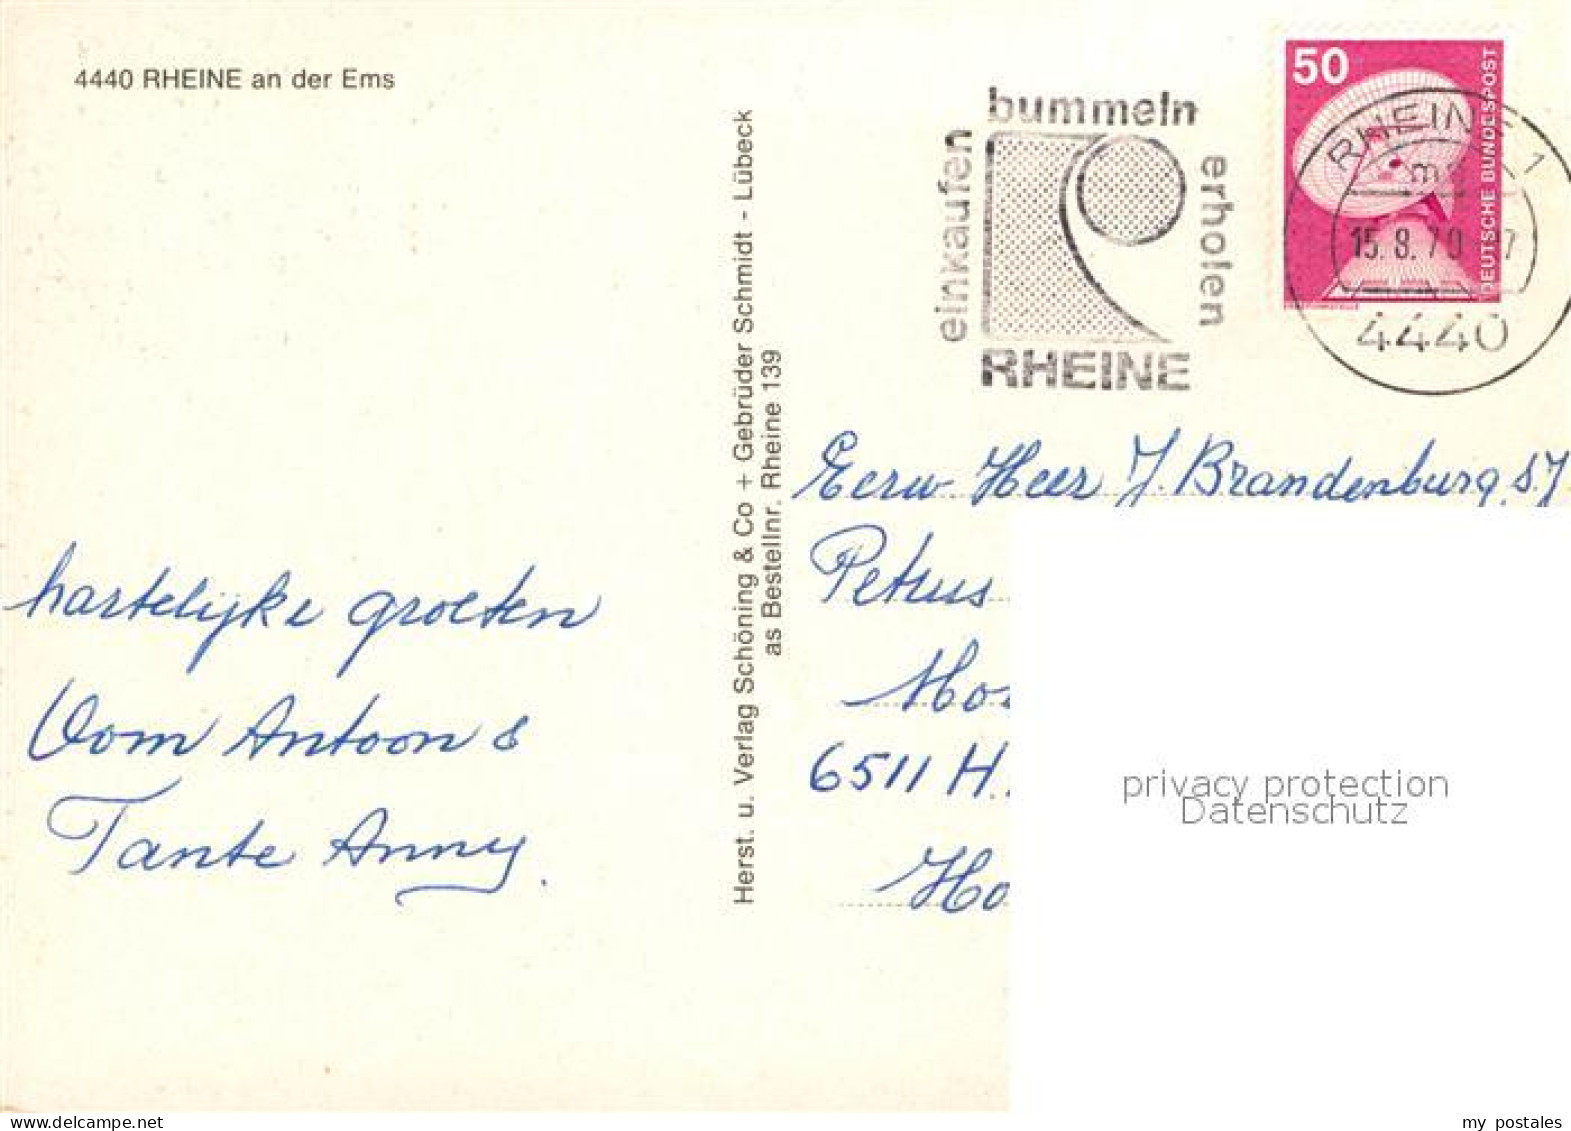 4440 RHEINE an der Ems
Herst. u. Verlag Schöning & Co + Gebrüder Schmidt - Lübeck
as Bestellnr. Rheine 139
bummeln
einkaufen
erholen
RHEINE
50
DEUTSCHE BUNDESPOST
RHEINE 1
15.8.79
4440
Eerw Heer J. Brandenburg S.J
Petrus
6511 H.
hartelijke groeten
Oom Antoon &
Tante Anny.
privacy protection
Datenschutz
www.delcampe.net
my_postales